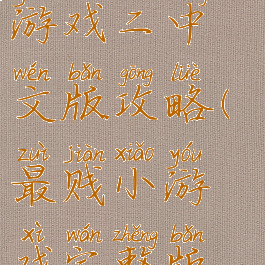 游戏二中
wén bǎn gōng lüè
文版攻略(
zuì jiàn xiǎo yóu
最贱小游
xì wán zhěng bǎn
戏完整版